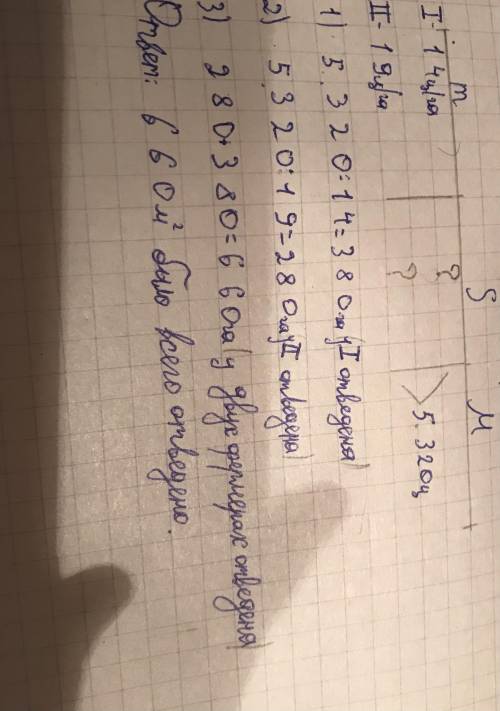 m S M
I - 14ц/га ? 5.320ц
II - 19ц/га ?
1) 5.320:14=380га (у I отведена)
2) 5.320:19=280га (у II отведена)
3) 280+380=660га (у двух фермерах отведена)
Ответ: 660м² было всего отведено.